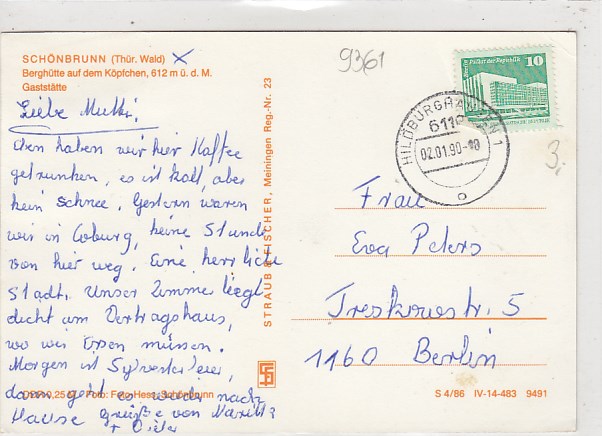 SCHÖNBRUNN (Thür. Wald) X
Berghütte auf dem Köpfchen, 612 m ü. d. M.
Gaststätte
Liebe Mutti,
eben haben wir hier Kaffee
getrunken, es ist kalt, aber
kein Schnee. Gestern waren
wir in Coburg, keine Stunde
von hier weg. Eine herrliche
Stadt. Unser Zimmer liegt
dicht am Vertragshaus,
wo wir Essen müssen.
Morgen ist Sylvesterfeier,
dann geht es wieder nach
Hause Grüße von
+ Dieter
0,25 Foto: Foto-Hess, Schönbrunn
STRAUB & FISCHER, Meiningen Reg.-Nr. 23
9361
Berlin Palast der Republik
10
HILDBURGHAUSEN 1
6110
02.01.90-10
3,-
Frau
Eva Peters
Treskowstr. 5
1160 Berlin
S 4/86 IV-14-483 9491